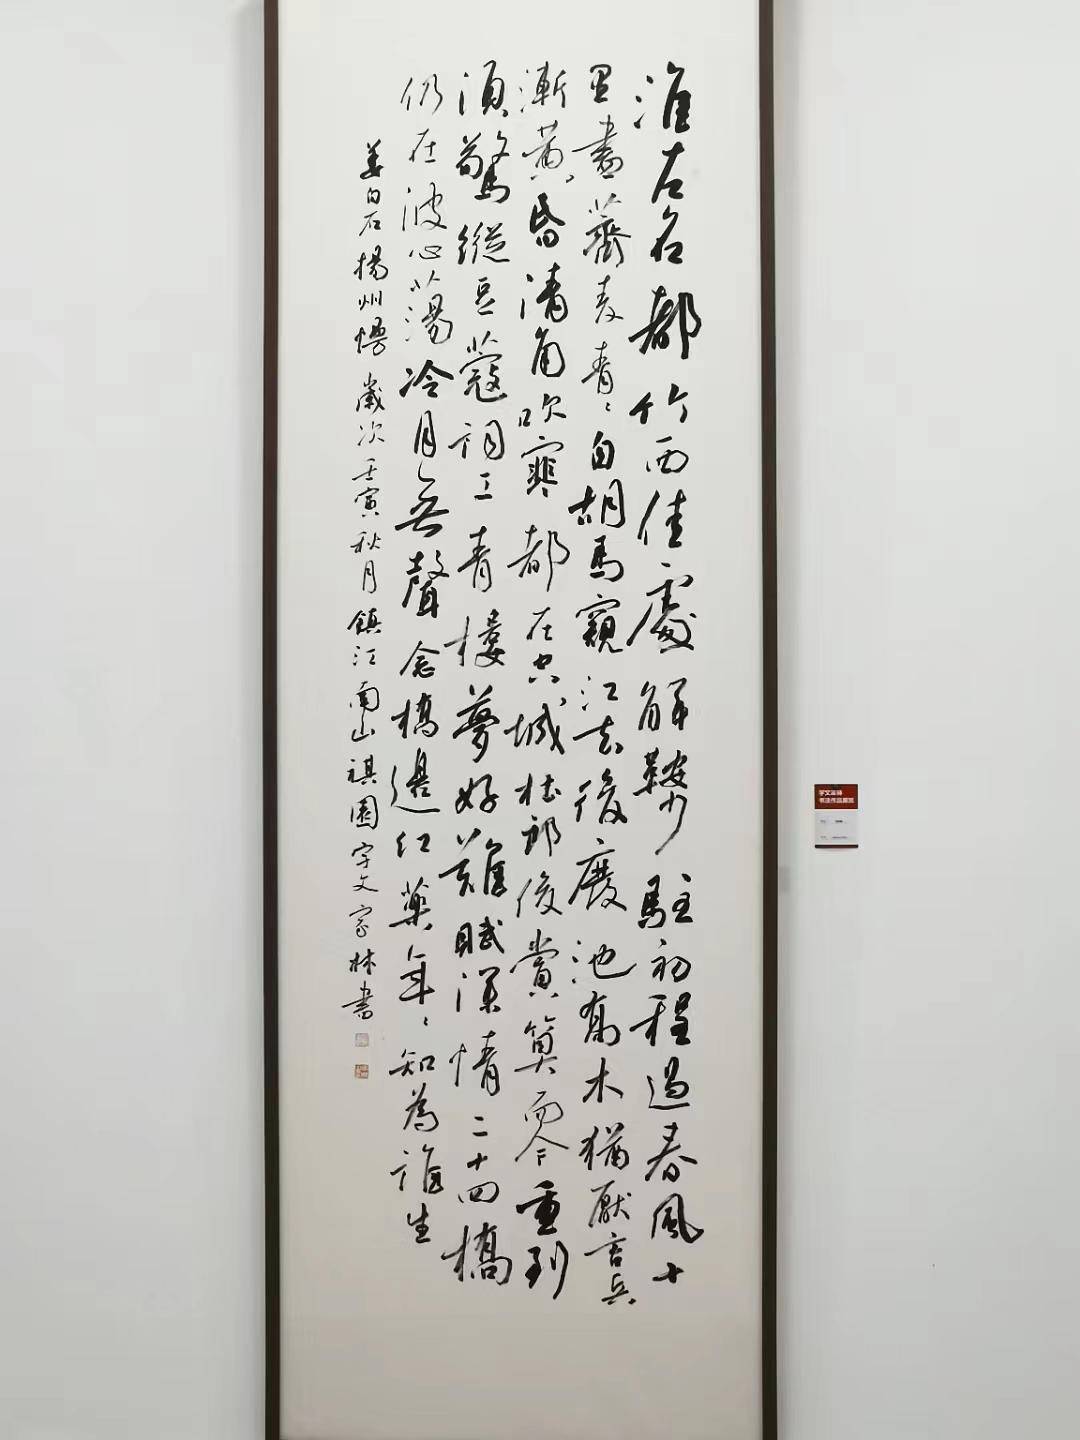 淮左名都竹西佳處解鞍少駐初程過春風十
里盡薺麦青〻自胡馬窺江去後廢池喬木猶厭言兵
漸黄昏清角吹寒都在空城杜郎俊賞算而今重到
須驚縱豆蔻詞工青樓夢好難賦深情二十四橋
仍在波心蕩冷月無聲念橋邊红藥年〻知為誰生
姜白石揚州慢 歲次壬寅秋月鎮江南山祺園宇文家林書
宇文家林
书法作品展览